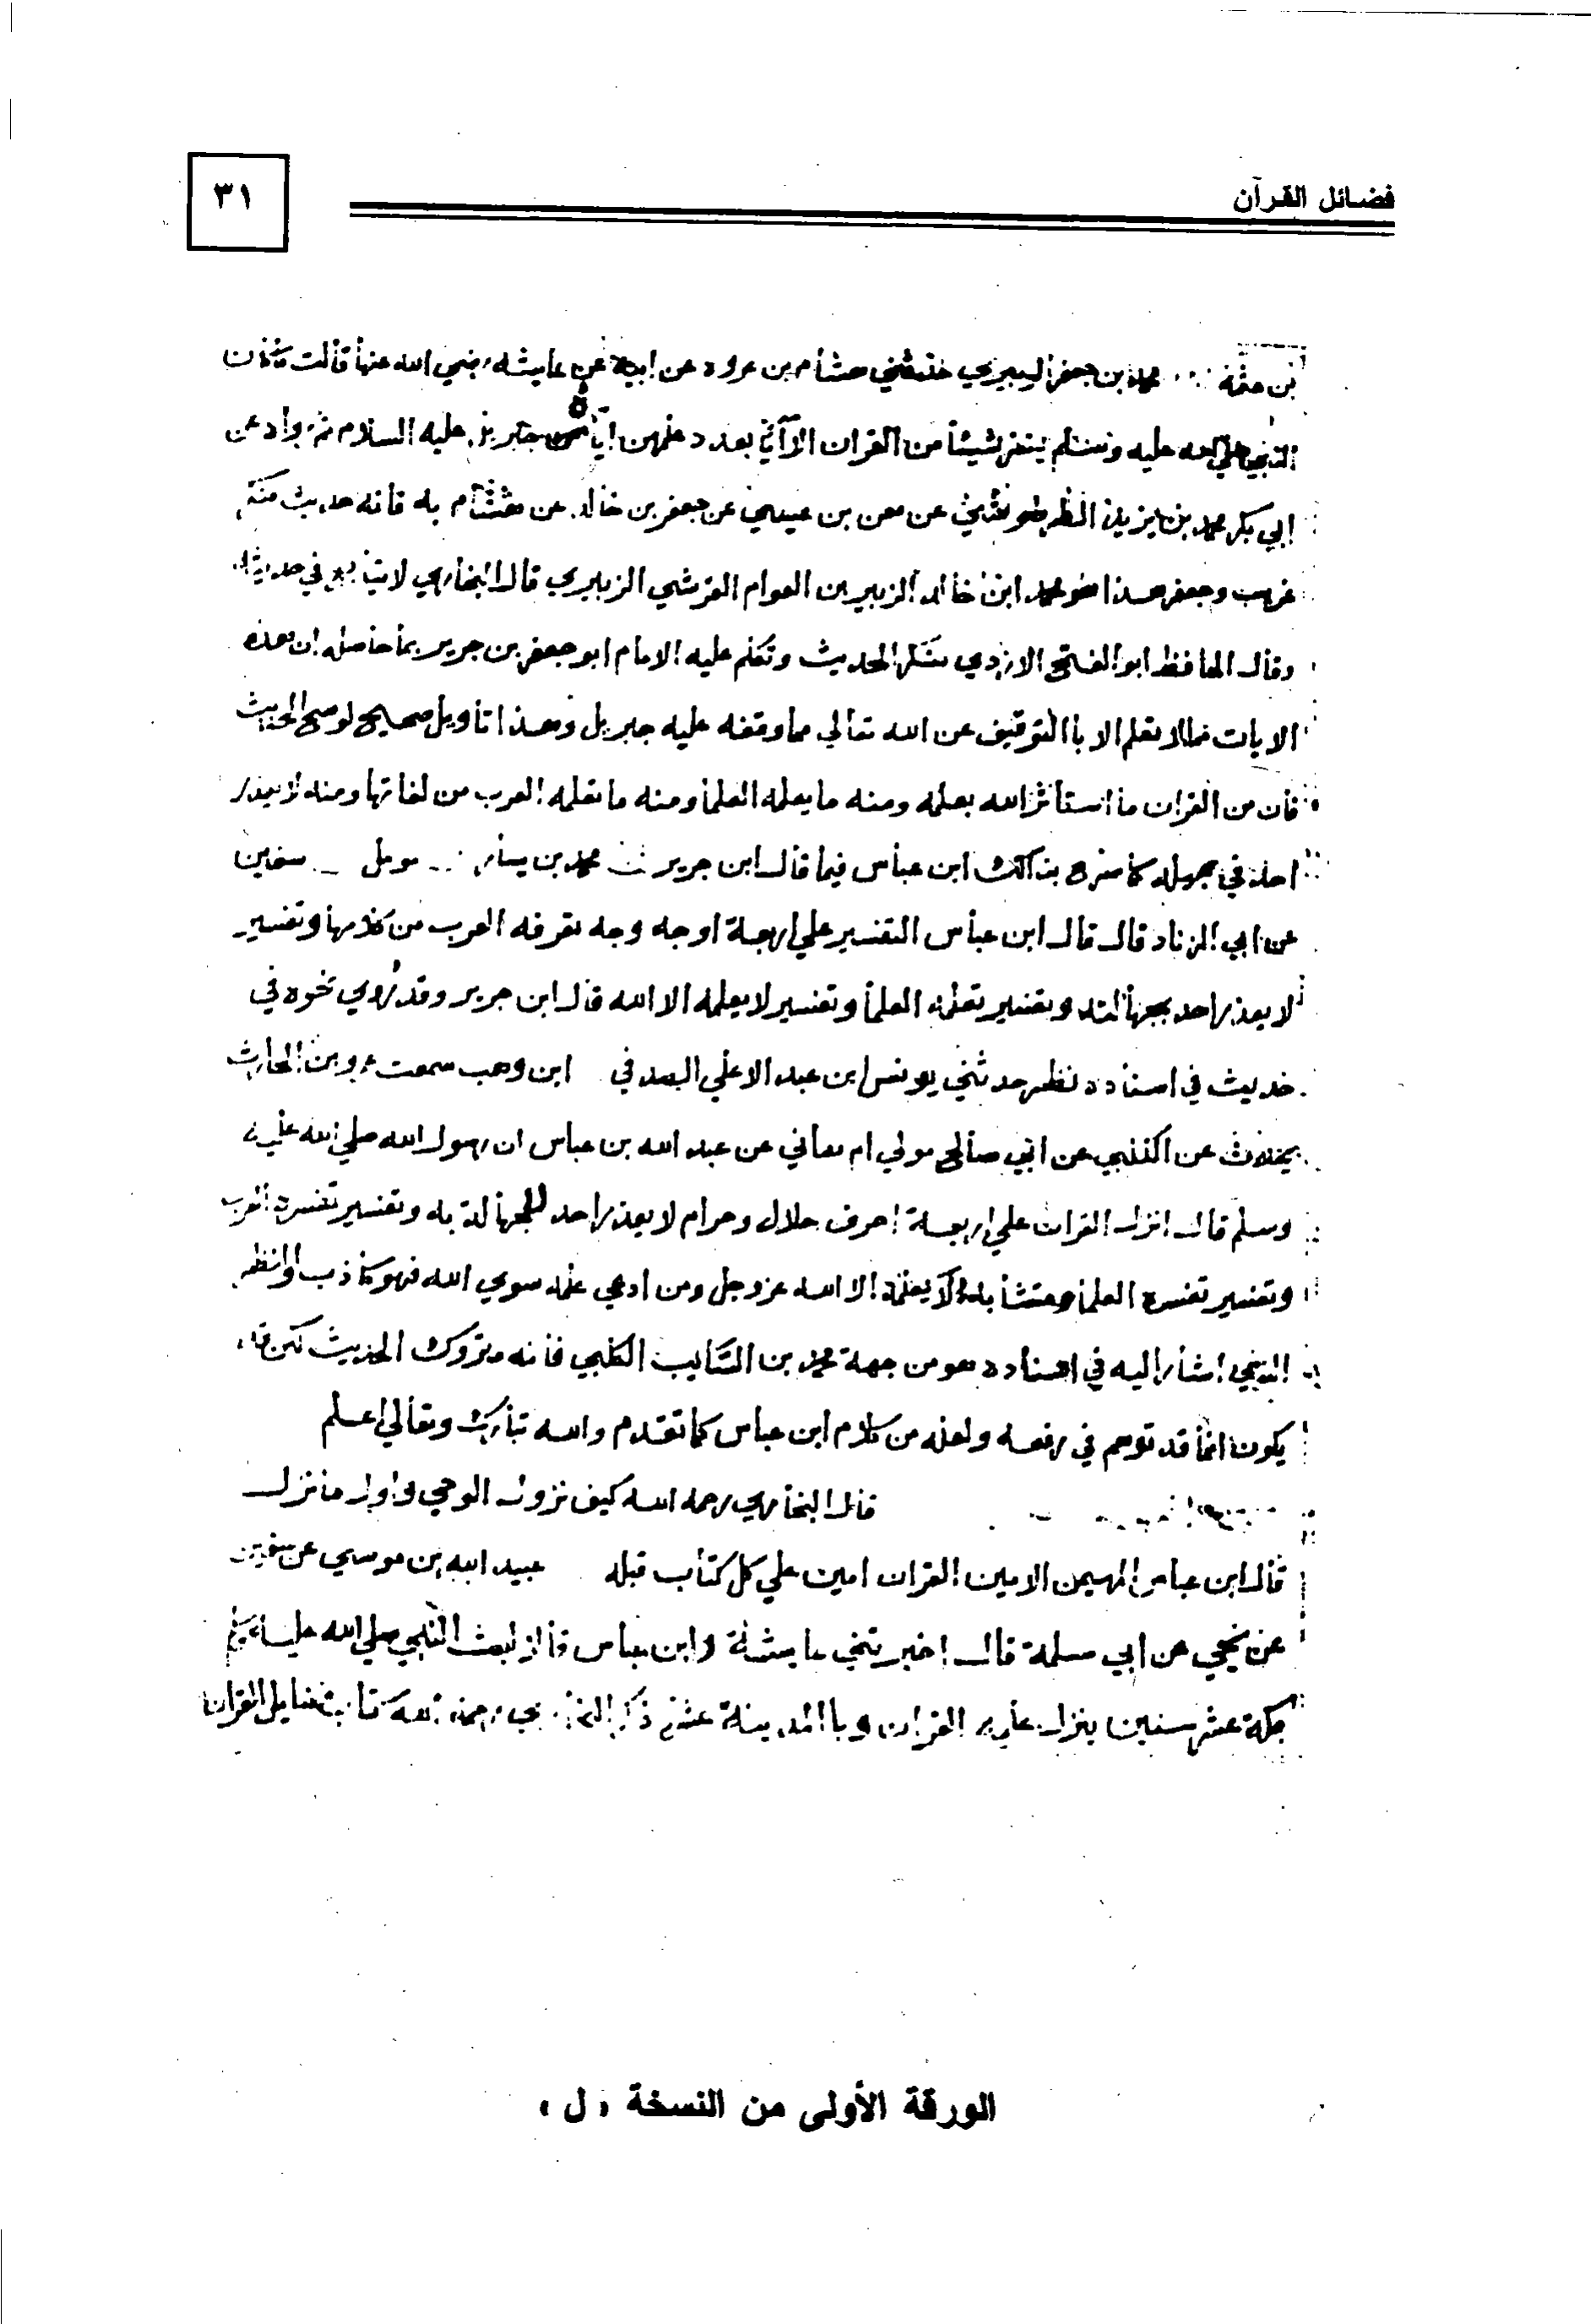 فضائل القرآن
٣١
بن عثمة محمد بن جعفر الزبيري حدثني هشام بن عروة عن ابيه عن عايشه رضي الله عنها قالت ما كان
النبي صلي الله عليه وسلم يفسر شيئا من القران الا آي بعدد علمهن اياه جبريل عليه السلام ثم رواه عن
ابي بكر محمد بن يزيد الطرطوشي عن معن بن عيسي عن جعفر بن خالد عن هشام به فانه حديث منكر
غريب وجعفر هذا هو محمد ابن خالد الزبير بن العوام القرشي الزبيري قال البخاري لا يتابع في حديثه
وقال الحافظ ابو الفتح الازدي منكر الحديث وتكلم عليه الامام ابو جعفر بن جرير بما حاصله ان هذه
الايات مما لا يعلم الا باالتوقيف عن الله تعالي مما وقفه عليه جبريل وهذا تأويل صحيح لو صح الحديث
فأن من القران ما استأثر الله بعلمه ومنه ما يعلمه العلما ومنه ما تعلمه العرب من لغاتها ومنه لا يعذر
احد في جهله كما صرح بذالك ابن عباس فيما قال ابن جرير محمد بن بسار مومل سفين
عن ابي الزناد قال قال ابن عباس التفسير علي اربعة اوجه وجه تعرفه العرب من كلامها وتفسير
لا يعذر احد بجهالته وتفسير يعلمه العلما وتفسير لا يعلمه الا الله قال ابن جرير وقد روي نحوه في
حديث في اسناده نظر حدثني يونس ابن عبد الاعلي الصدفي ابن وهب سمعت عمرو بن الحارث
يحدث عن الكلبي عن ابي صالح مولي ام هاني عن عبد الله بن عباس ان رسول الله صلي الله عليه
وسلم قال انزل القران علي اربعة احرف حلال وحرام لا يعذر احد للجهالة به وتفسير تفسره العرب
وتفسير تفسره العلما ومتشابه لا يعلمه الا الله عز وجل ومن ادعي علمه سوي الله فهو كاذب والنظر
الذي اشار اليه في اسناده هو من جهة محمد بن السايب الكلبي فانه متروك الحديث لكن قد
يكون انما قد توهم في رفعه ولعله من كلام ابن عباس كما تقدم والله تبارك وتعالي اعلم
قال البخاري رحمه الله كيف نزول الوحي واول ما نزل
قال ابن عباس المهيمن الامين القران امين علي كل كتاب قبله عبيد الله بن موسي عن شيبن
عن يحيي عن ابي سلمة قال اخبرتني عايشة وابن عباس قالا لبعث النبي صلي الله عليه وسلم
بمكة عشر سنين ينزل عليه القران وباالمدينة عشرا ذكر البخاري رحمه الله كتاب فضايل القران
الورقة الأولى من النسخة « ل »